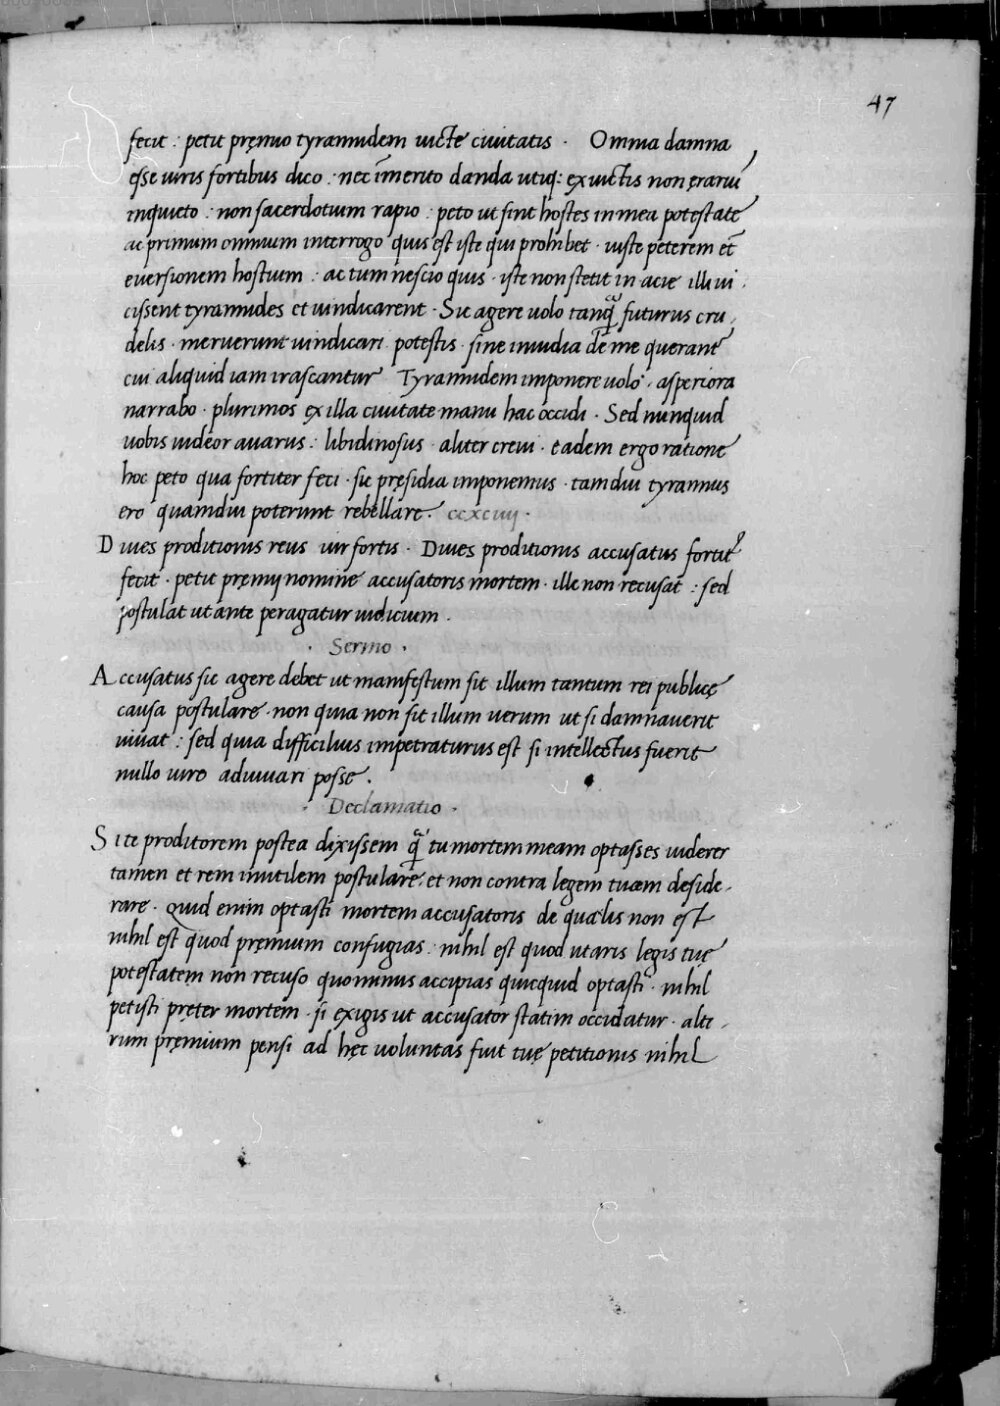 47
fecit : petit pręmio tyrannidem uictę ciuitatis · Omnia damna
esse uiris fortibus dico : nec im̄erito danda utiq: ex uictis non ęrariū
inquieto : non sacerdotium rapio : peto ut sint hostes in mea potestate
ac primum omnium interrogo quis est iste qui prohibet · iuste peterem et
euersionem hostium : ac tum nescio quis · iste non stetit in acie illi ui
cissent tyrannides et uindicarent · Sic agere uolo tanq̃ futurus cru
delis · meruerunt uindicari potestis · sine inuidia de me querant
cui aliquid iam irascantur Tyrannidem imponere uolo · asperiora
narrabo · plurimos ex illa ciuitate manu hac occidi · Sed nunquid
uobis uideor auarus : libidinosus · aliter creui · eadem ergo ratione
hoc peto qua fortiter feci · sic pręsidia imponemus · tamdiu tyrannus
ero quamdiu poterunt rebellare · ccxciiij ·
Diues proditionis reus uir fortis · Diues proditionis accusatus fortit̉
fecit · petit pręmij nomine accusatoris mortem · ille non recusat : sed
postulat ut ante peragatur iudicium ·
· Sermo ·
Accusatus sic agere debet ut manifestum sit illum tantum rei publicę
causa postulare · non quia non sit illum uerum ut si damnauerit
uiuat : sed quia difficilius impetraturus est si intellectus fuerit
nullo uiro adiuuari posse ·
· Declamatio ·
Si te proditorem postea dixissem q̃ tu mortem meam optasses uiderer
tamen et rem inutilem postulare : et non contra legem tuam deside-
rare · Quid enim optasti mortem accusatoris de qua lis non est
nihil est quod pręmium confugias : nihil est quod utaris legis tuę
potestatem non recuso quominus accipias quicquid optasti · nihil
petisti pręter mortem · si exigis ut accusator statim occidatur · alte-
rum pręmium pensi ad hęc uoluntas fuit tuę petitionis nihil